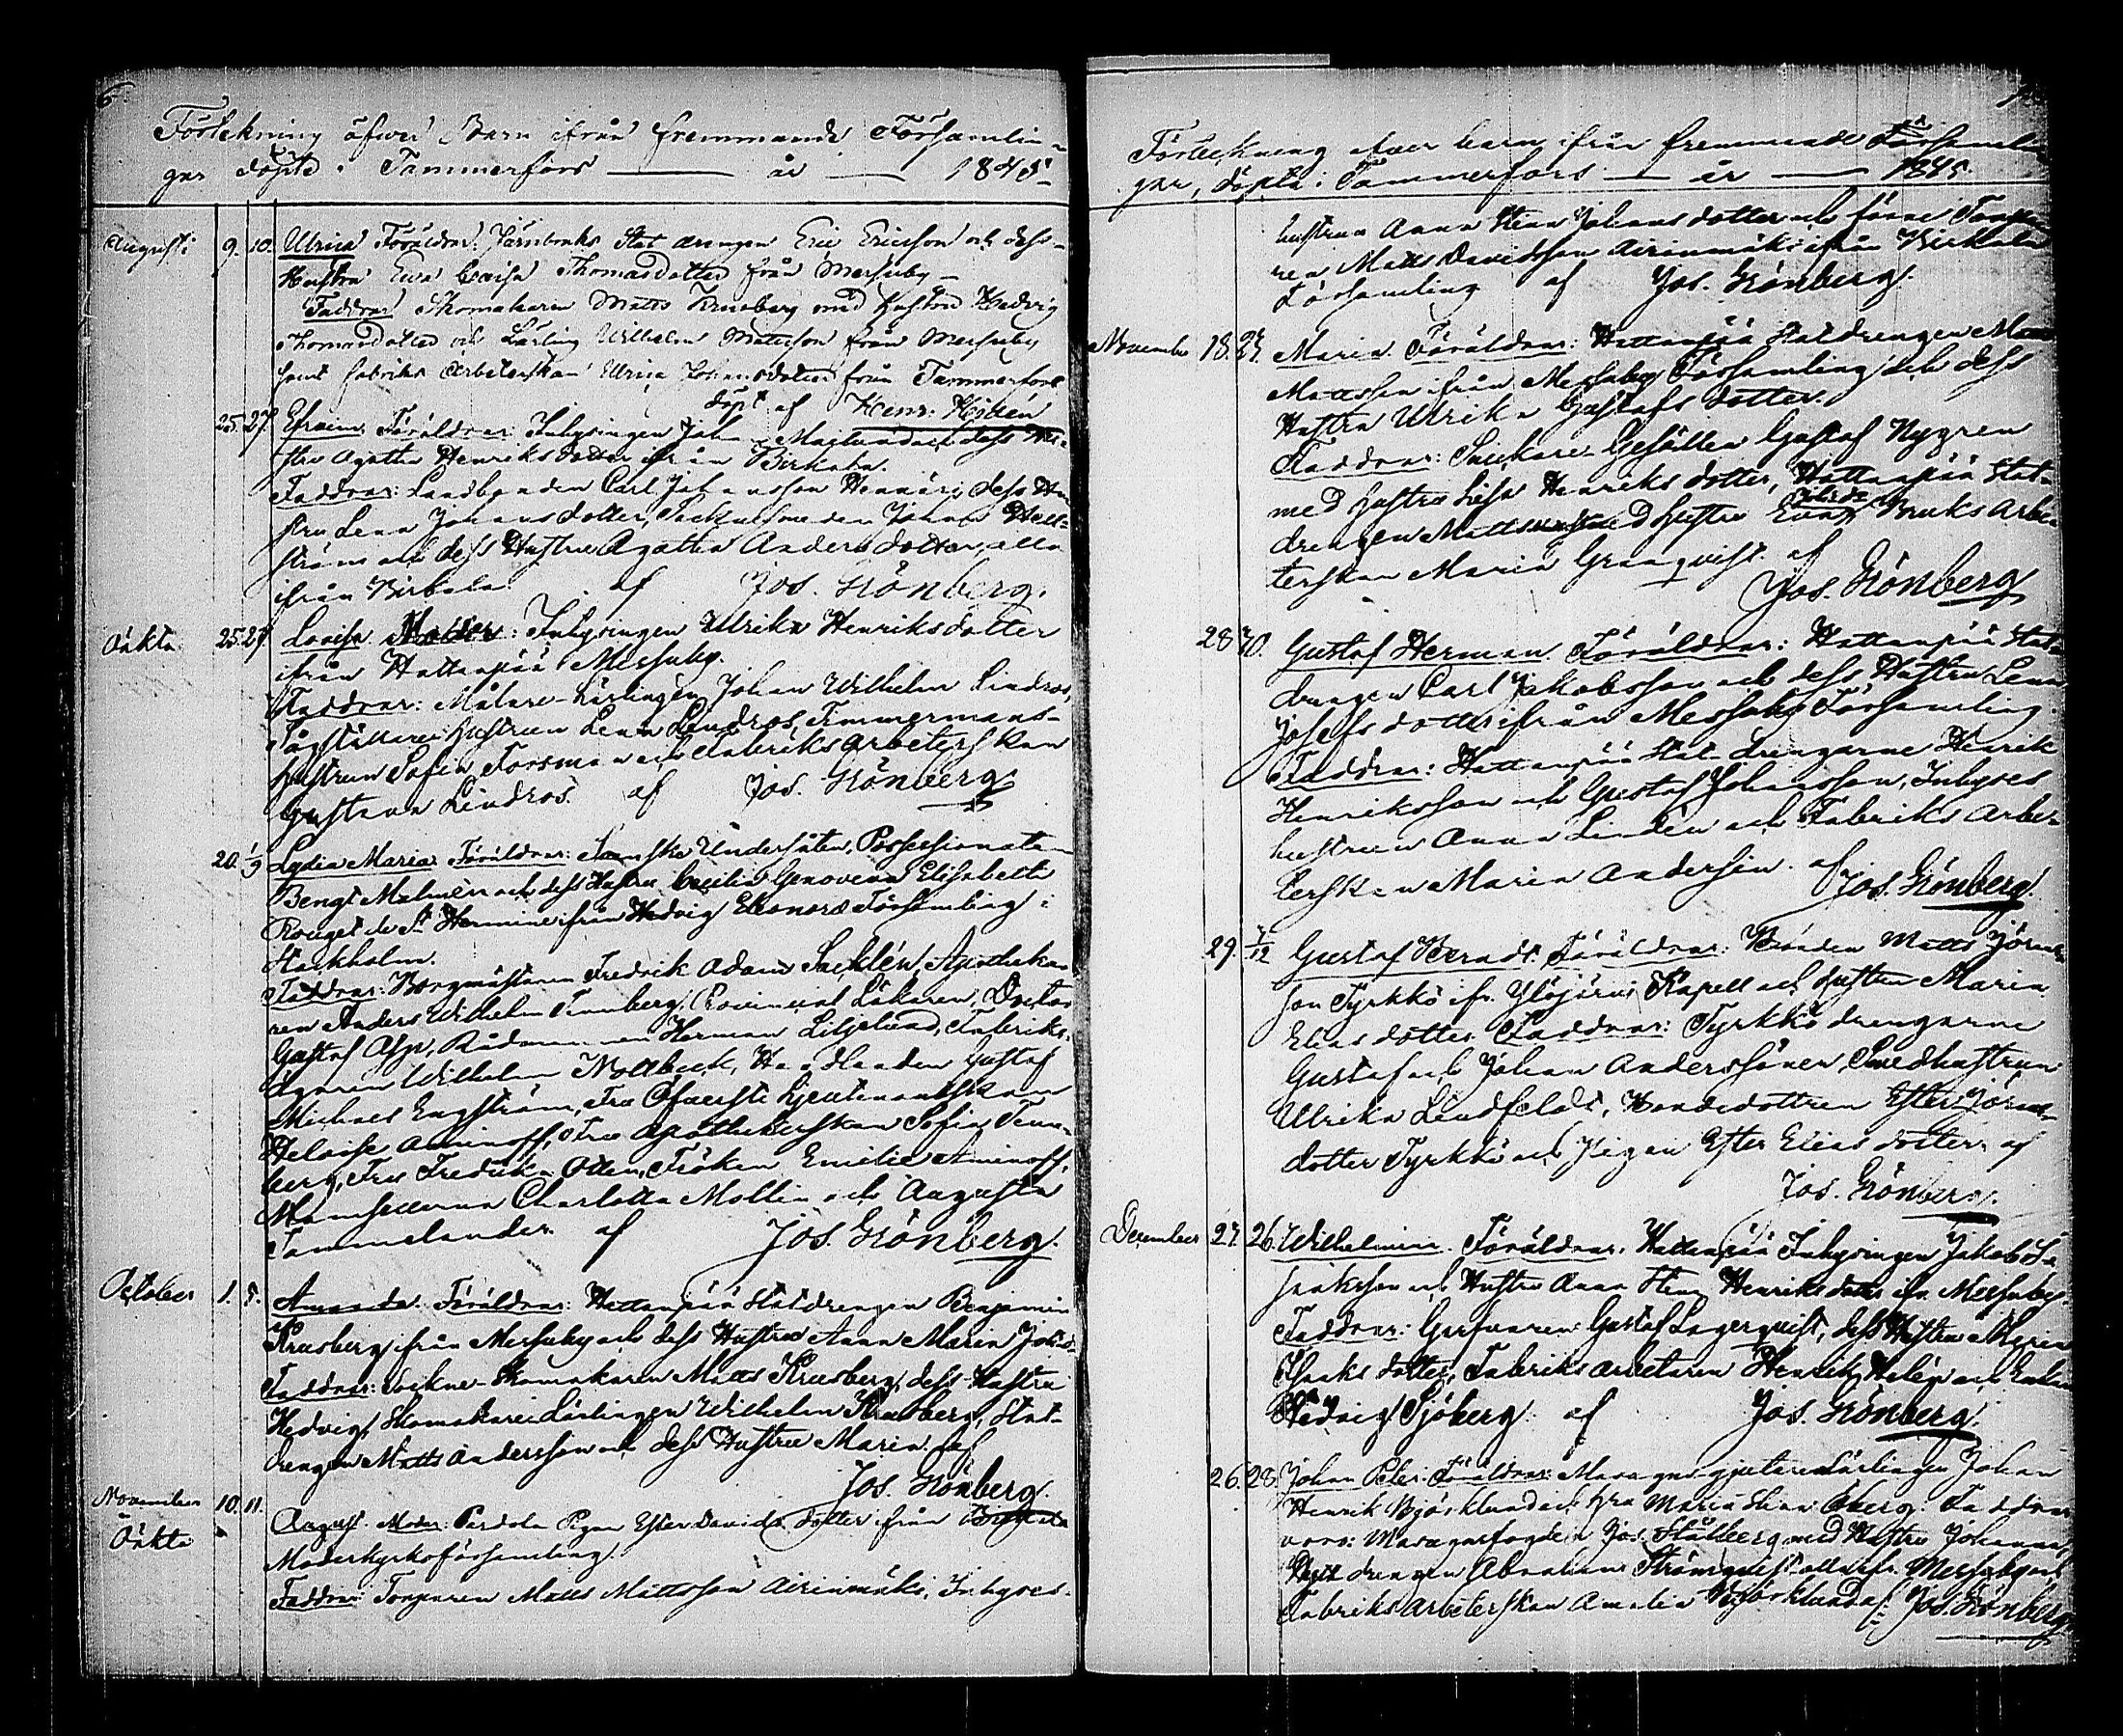 6.
Förtekning öfwer Barn ifrån fremmande Församlin-
gar döpte i Tammerfors — år — 1845
Augusti 9. 10. Ulrica Föräldrar: Järnbruks Stat drengen Eric Ericsson och dess
Hustru Ewa Caisa Thomasdotter från Messuby
Faddrar Skomakaren Matts Kruusberg med Hustru Hedvig
Thomasdotter och Lärling Wilhelm Mattsson från Messuby
samt fabriks Arbeterskan Ulrica Johansdotter från Tammerfors
döpt af Henr: Hedén
25. 27. Efraim. Föräldrar: Inhysingen Johan Majlund och dess Hu-
stru Agatha Henriksdotter ifrån Birkala.
Faddrar: Landbonden Carl Johansson Hennäri, dess Hu-
stru Lena Johansdotter, Sockensmeden Johan Hell-
ström och dess Hustru Agatha Andersdotter, alla
ifrån Birkala af Jos. Grönberg.
Oäkta 25. 27. Lovisa. Moder: Inhysingen Ulrika Henriksdotter
ifrån Hattanpää i Messuby.
Faddrar: Målare-Lärlingen Johan Wilhelm Lindros,
hustrun Lena Lindros, Timmermans-
hustrun Sofia Forsman och Fabriks arbeterskan
Gustava Lindros. af Jos. Grönberg
20. 1/9 Lydia Maria Föräldrar: Svenske Undersåten, Possessionaten
Bengt Malmén och dess Hustru Cecilia Genoveva Elisabeth
Rouget de St Hermine ifrån Hedvig Eleonoræ Församling i
Stockholm.
Faddrar: Borgmästaren Fredrik Adam Sacklén, Apotheka-
ren Anders Wilhelm Tennberg, Provincial Läkaren, Doctor
Gustaf Asp, Rådmannen Herman Liljelund, Fabriks-
ägaren Wilhelm Nottbeck, Handlanden Gustaf
Michael Engström, Fru Öfverste Lieutenantskan
Heloise Aminoff, Fru Apothekerskan Sofia Tenn-
berg, Fru Fredrika Odén, Fröken Emilie Aminoff,
Mamsellerna Charlotta Mollin och Augusta
Tammelander af Jos. Grönberg.
October 1. 5. Amanda. Föräldrar: Hattanpää Statdrengen Benjamin
Kruusberg ifrån Messuby och dess Hustru Anna Maria Johansd.
Faddrar: Sockne-Skomakaren Matts Kruusberg, dess Hustru
Hedvig, Skomakare Lärlingen Wilhelm Kruusberg, Stat-
drengen Matts Andersson och dess Hustru Maria. af
Jos. Grönberg.
November 10. 11. August. Moder: Perdola Pigan Ester Davidsdotter ifrån Birkala
Oäkta Moderkyrkoförsamling.
Faddrar: Torparen Matts Mattsson Airinmäki, Inhyses-
Förteckning öfver barn ifrån fremmande Församlin-
gar, döpta i Tammerfors — år — 1845.
hustrun Anna Stina Johansdotter och förre Torpa-
ren Matts Davidsson Airinmäki ifrån Birkala
Församling af Jos. Grönberg.
November 18. 23. Maria. Föräldrar: Hattanpää Statdrengen Matts
Mattsson ifrån Messuby Församling och dess
Hustru Ulrika Gustafsdotter.
Faddrar: Snickare Gesällen Gustaf Nygren
med Hustru Lisa Henriksdotter, Hattanpää Stat-
drengen Matts med Hustru Eva, Bruks Arbe-
terskan Maria Granqvist. af
Jos. Grönberg
28. 30. Gustaf Herman. Föräldrar: Hattanpää Stat-
drengen Carl Jakobsson och dess Hustru Lena
Josefsdotter ifrån Messuby Församling.
Faddrar: Hattanpää Stat-drengarne Henrik
Henriksson och Gustaf Johansson, Inhyses
hustrun Anna Lindén och Fabriks Arbe-
terskan Maria Andersin. af
Jos. Grönberg.
29. 7/12 Gustaf Berndt. Föräldrar: Bonden Matts Jörans-
son Tyrkkö ifr. Ylöjärvi Kapell och hustru Maria
Eliasdotter. Faddrar: Tyrkkö drengarne
Gustaf och Johan Anderssöner, Smedhustrun
Ulrika Lindfeldt, Bondedottren Ester Jörans-
dotter Tyrkkö och Pigan Ester Eliasdotter. af
Jos. Grönberg.
December 21. 26. Wilhelmina. Föräldrar: Hattanpää Inhysingen Jakob I-
saksson och Hustru Anna Stina Henriksdotter ifr. Messuby.
Faddrar: Garfvaren Gustaf Lagerqvist, dess Hustru Regina
Isaksdotter, Fabriks arbetaren Henrik Helén och Enkan
Hedvig Sjöberg. af Jos. Grönberg.
26. 28. Johan Peter: Föräldrar: Masugns-gjutarelärlingen Johan
Henrik Björklund och hru Maria Stina Åberg: Faddrar
voro: Masugnsfogden Jos: Stålberg med Hustru Johanna,
drengen Abraham Strömqvist alla ifr. Messuby och
Fabriksarbeterskan Amalia Björklund af: Jos. Grönberg